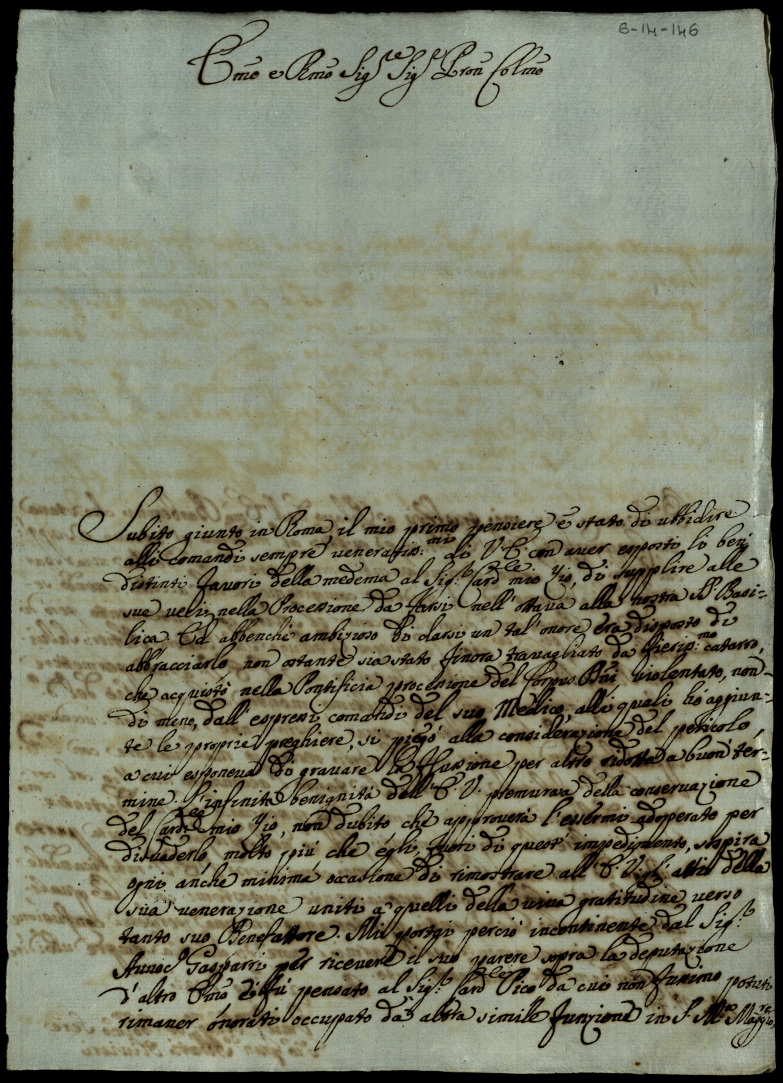 6-14-146
Emo e Rmo Sigre Sigr Pron Colmo
Subito giunto in Roma il mio primo pensiere è stato di ubbidire
alli comandi sempre veneratis:mi di V. E. con aver esposti li beni
distinti favori della medema al Sigr Cardle mio Zio, di supplire alle
sue veci nella Processione da farsi nell'ottava alla nostra Basi-
lica Ed abbenchè ambizioso di darsi un tal'onore era disposto di
abbracciarlo non ostante sia stato finora travagliato da fieris:mo catarro,
che acquistò nella Pontificia processione del Corpus Dni violentato, non-
dimeno, dall'espressi comandi del suo Medico, alli quali hò aggiun-
te le proprie preghiere, si piegò alla considerazione del pericolo,
a cui esponeva di gravare la flussione per altro ridotta a buon ter-
mine. L'infinita benignità dell'E. V. premurosa della conservazione
del Cardle mio Zio, non dubito che approverà l'essermi adoperato per
disuaderlo, molto più che egli, fuori di quest'impedimento, sospira
ogni, anche minima occasione di rimostrare all'E. V. gli atti della
sua venerazione uniti a quelli della viva gratitudine verso
tanto suo Benefattore. Mi portai perciò incontinente dal Sigr
Avvocto Gasparri per ricevere il suo parere sopra la deputazione
d'altro Emo, e si fù pensato al Sigr Card Pico da cui non fussimo potuti
rimaner onorati occupato da altra simile funzione in S. Ma Maggre